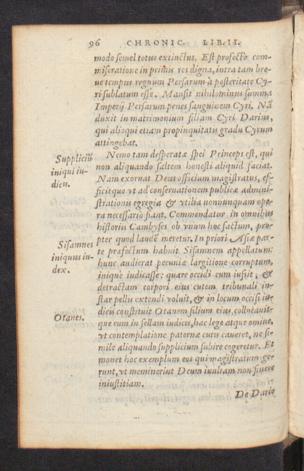 96 CHRONIC. LIB. II.
modo semel totus extinctus. Est profectò com-
miseratione in primis res digna, intra tam bre-
ue tempus regnum Persarum à posteritate Cy-
ri sublatum esse. Mansit nihilominus summa
Imperij Persarum penes sanguinem Cyri. Nā
duxit in matrimonium filiam Cyri Darius,
qui alioqui etiam propinquitatis gradu Cyrum
attingebat.
Nemo tam desperatæ spei Princeps est, qui
non aliquando saltem honesti aliquid faciat.
Suppliciū
iniqui iu-
dicis.
Nam exornat Deus officium magistratus, ef-
ficitque vt ad conseruationem publicæ admini-
strationis egregia & vtilia nonnunquam ope-
ra necessario fiant. Commendatur in omnibus
historijs Cambyses ob vnum hoc factum, pro-
pter quod laudē meretur. In priori Asiæ par-
te profectum habuit Sisamnem appellatum:
Sisamnes
iniquus iu-
dex.
hunc audierat pecuniæ largitione corruptum,
iniquè iudicasse: quare occidi eum iussit, &
detractam corpori eius cutem tribunali in-
star pellis extendi voluit, & in locum occisi iu-
dicis constituit Otanem filium eius, collocauit-
Otanes.
que eum in sellam iudicis, hac lege atque omine,
vt contemplatione paternæ cutis caueret, ne si-
mile aliquando supplicium subire cogeretur. Et
monet hoc exemplum eos qui magistratum ge-
runt, vt meminerint Deum inultam non sinere
iniustitiam.
De Dario